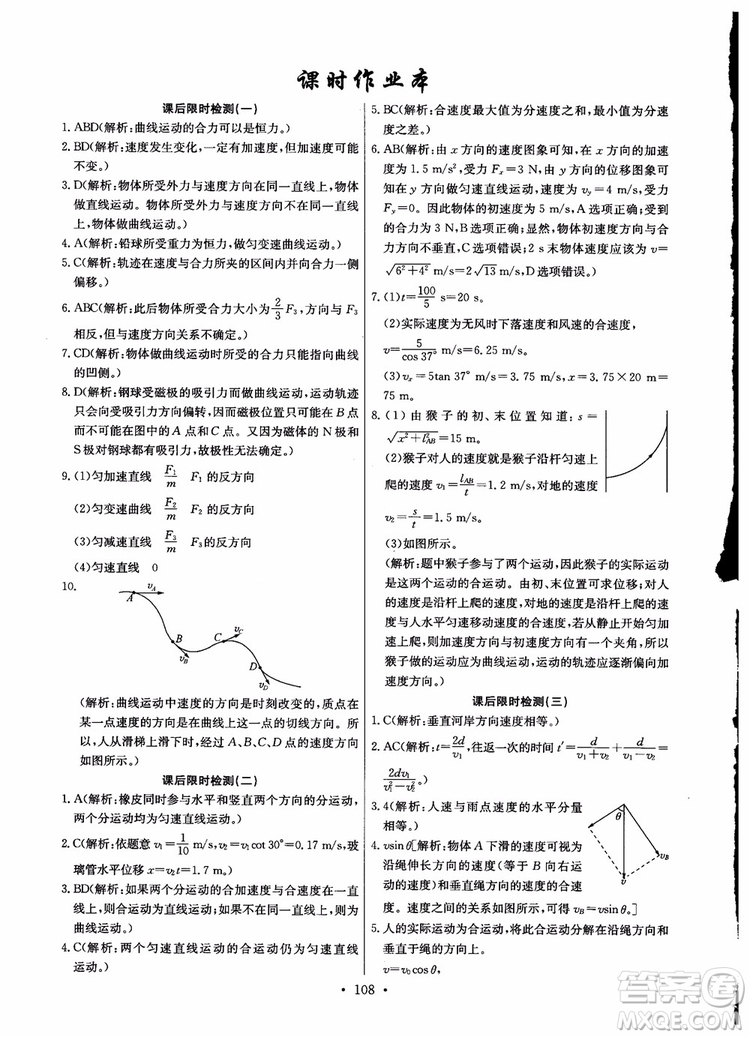 课时作业本
课后限时检测(一)
1. ABD(解析:曲线运动的合力可以是恒力。)
2. BD(解析:速度发生变化,一定有加速度,但加速度可能
不变。)
3. D(解析:物体所受外力与速度在同一直线上,物体
做直线运动。物体所受外力与速度不在同一直线上,
物体做曲线运动。)
4. A(解析:铅球所受重力为恒力,做匀变速曲线运动。)
5. C(解析:轨迹在速度与合力所夹的区间内并向合力一侧
偏移。)
6. ABC(解析:此后物体所受合力大小为2/3 F₃,方向与F₃
相反,但与速度方向关系不确定。)
7. CD(解析:物体做曲线运动时所受的合力只能指向曲线
的凹侧。)
8. D(解析:钢球受磁极的吸引力的方向性,运动轨迹
只会向受吸引力方向偏转,因此可能在B点
而不可能在C点和A点。又因为磁体的N极和
S极对钢球都有吸引力,故极性无法确定。)
9. (1)匀加速直线 F₁/m F₁的反方向
(2)匀变速曲线 F₂/m F₂的反方向
(3)匀减速直线 F₃/m F₃的反方向
(4)匀速直线 0
10.
A v_A
B v_B C v_C
D v_D
(解析:曲线运动中速度的方向是时刻改变的,质点在
某一点速度的方向是在曲线上这一点的切线方向。所
以,人从滑梯上滑下时,经过A、B、C、D各点的速度方向
如图。)
课后限时检测(二)
1. A(解析:橡皮同时参与水平和竖直两个方向的分运动,
两个分运动均为匀速直线运动。)
2. C(解析:依题意v₁=1/10 m/s,v₂=v₁cot 30°=0.17 m/s,玻
璃管水平位移x=v₂t=1.7 m。)
3. BD(解析:如果两个分运动的合加速度与合速度在一条
直线上,则合运动为直线运动;如果不在一条直线上,则为
曲线运动。)
4. C(解析:两个匀速直线运动的合运动仍为匀速直线
运动。)
5. BC(解析:合速度最大值为分速度之和,最小值为分速
度之差。)
6. AB(解析:由x方向的速度图象可知,在x方向的加速
度为1.5 m/s²,受力Fₓ=3 N,由y方向的位移图象可知
在y方向做匀速直线运动,速度为v_y=4 m/s,受力
F_y=0。因此物体的初速度为5 m/s,A选项正确;受到
的合力为3 N,B选项正确;显然,初速度方向与合
力方向不垂直,C选项错误;2 s末物体速度应该为v=
√(6²+4²) m/s=2√13 m/s,D选项错误。)
7. (1)t=100/5 s=20 s。
(2)实际速度为无风时下落速度和风速的合速度,
v=5/cos 37° m/s=6.25 m/s。
(3)vₓ=5tan 37° m/s=3.75 m/s,x=3.75×20 m=
75 m。
8. (1)由猴子的初、末位置知道:s=
√(x²+l²_AB)=15 m。
(2)猴子对人的速度就是猴子沿杆匀速上
爬的速度v₁=l_AB/t=1.2 m/s,对地的速度
v₂=s/t=1.5 m/s。
(3)如图所示。
(解析:题中猴子参与了两个运动,因此猴子的实际运动
是这两个运动的合运动。由初、末位置可求位移;对人
的速度是沿杆上爬的速度,对地的速度是沿杆上爬的速
度与人水平匀速移动速度的合速度。若从静止开始匀加
速上爬,则加速度方向与初速度方向有一个夹角,所以
猴子做的运动应为曲线运动,运动的轨迹应逐渐偏向加
速度方向。)
课后限时检测(三)
1. C(解析:垂直河岸方向速度相等。)
2. AC(解析:t=2d/v₁,往返一次的时间t′=d/(v₁+v₂)+d/(v₁−v₂)=
2dv₁/(v₁²−v₂²)。)
3. 4(解析:人速与雨点速度的水平分量
相等。)
4. vsin θ[解析:物体A下滑的速度可视为
沿绳伸长方向的速度(等于B向右运
动的速度)和垂直绳方向的速度的合速
度。速度之间的关系如图所示,可得v_B=vsin θ。]
θ
v_B
v
5. 人的实际运动为合运动,将此合运动分解在沿绳方向和
垂直于绳的方向。
v=v₀cos θ,
· 108 ·
答案圈
MXQE.COM